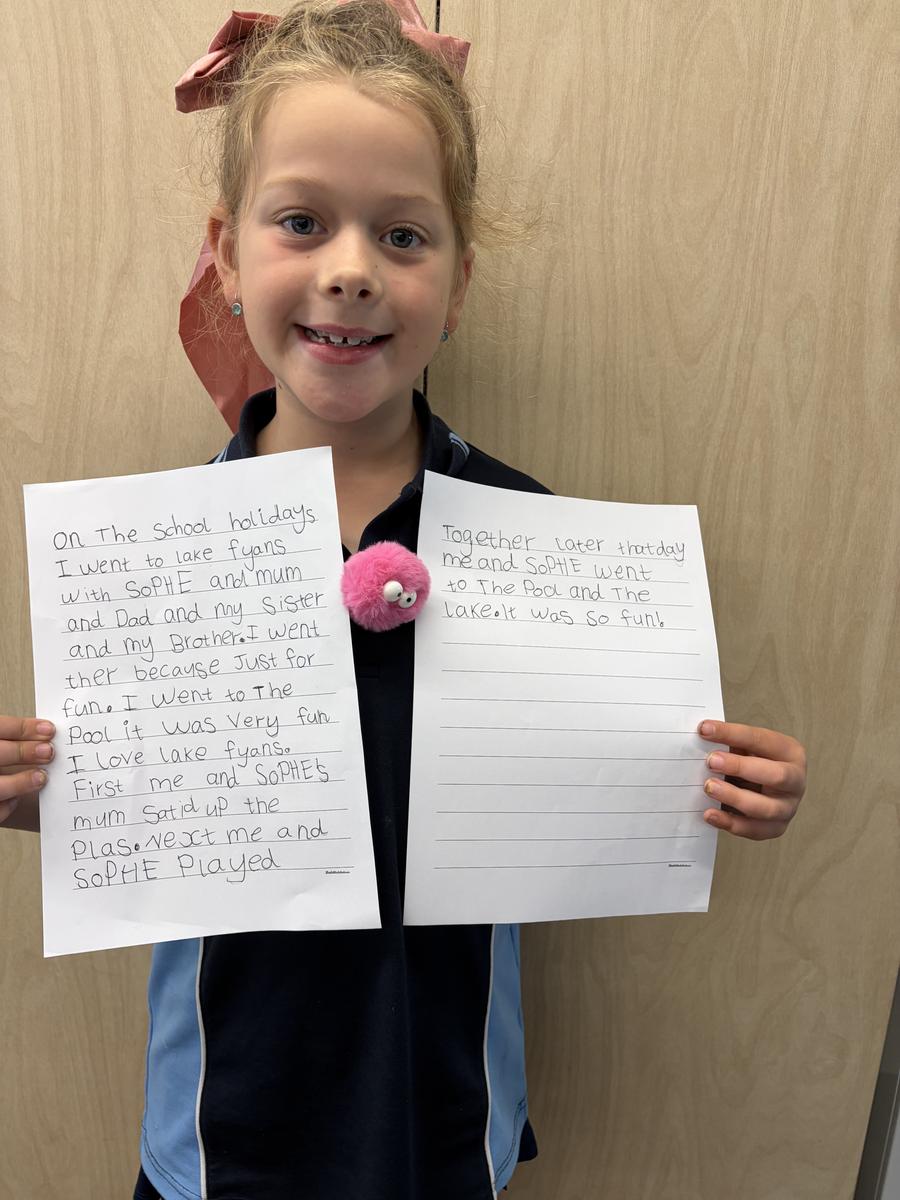 On The School holidays
I went to lake fyans
with SoPHE and mum
and Dad and my Sister
and my Brother. I went
ther because Just for
fun. I went to The
Pool it was very fun
I love lake fyans.
First me and SoPHE's
mum Satid up the
Plas. Next me and
SoPHE Played
Together later that day
me and SoPHE went
to The Pool and The
Lake. It was so fun!